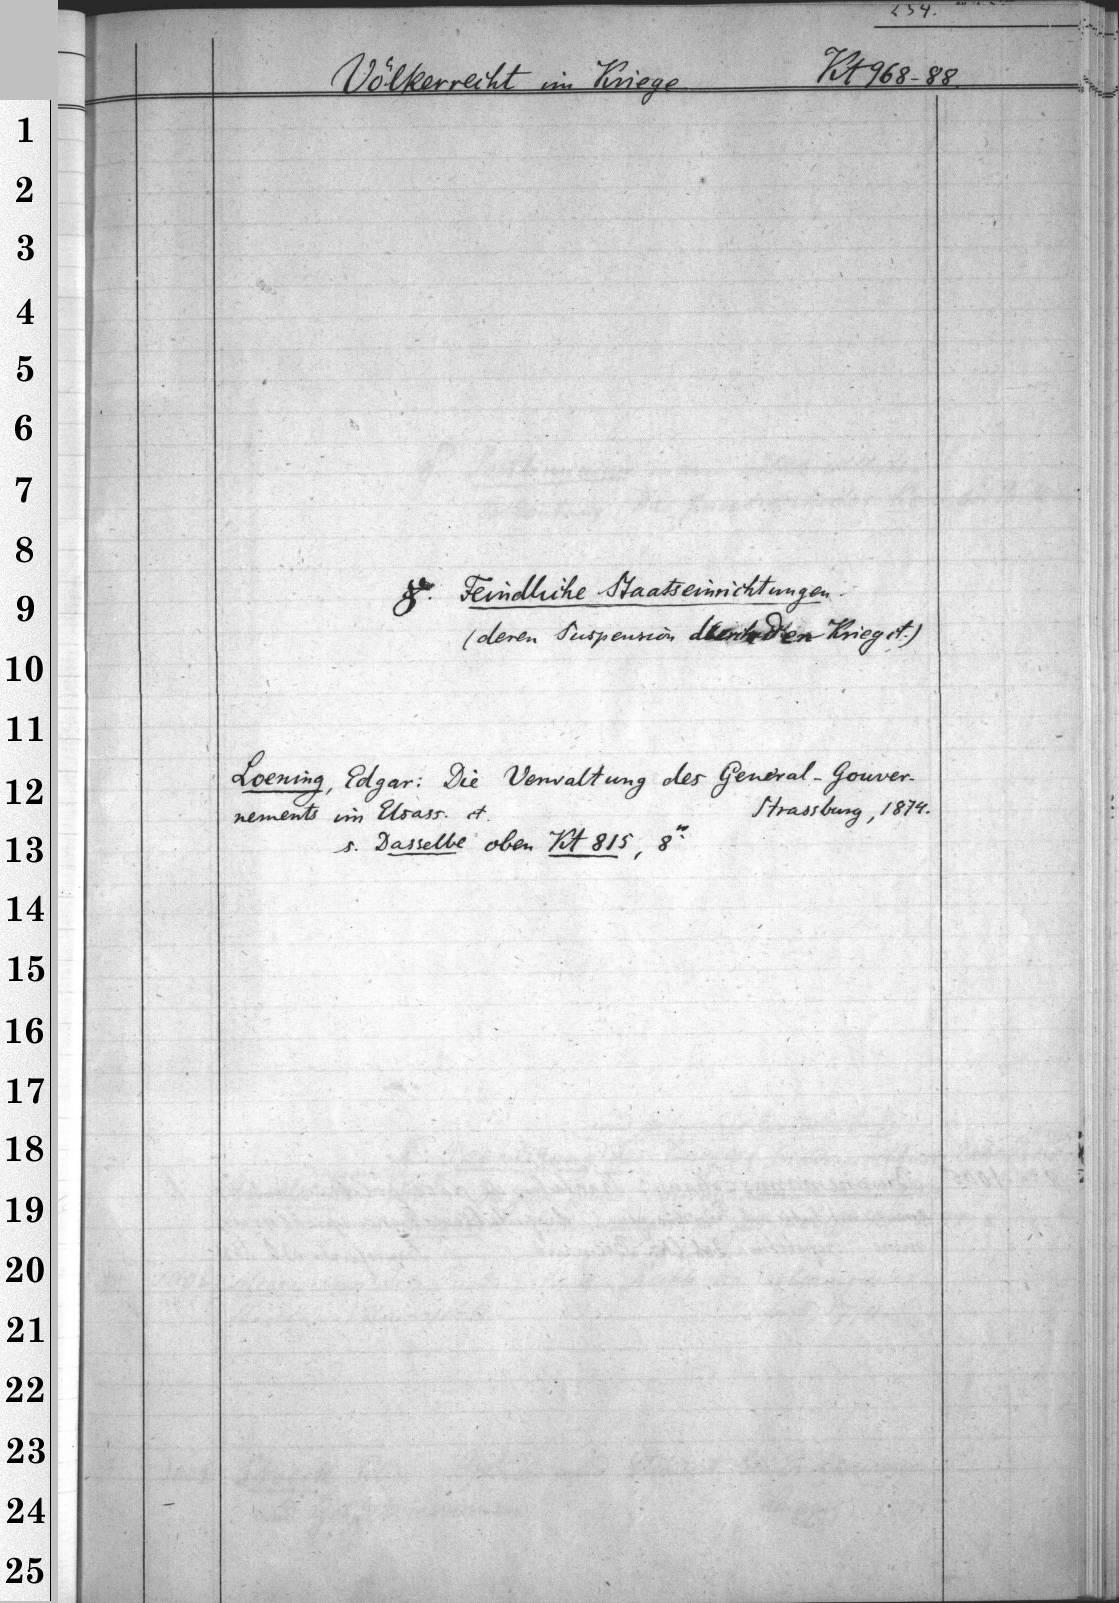 254.
Völkerrecht im Kriege Kt 968-88.
1
2
3
4
5
6
7
8
9
10
11
12
13
14
15
16
17
18
19
20
21
22
23
24
25
Feindliche Staatseinrichtungen.
(deren Suspension den Krieg ct.)
Loening, Edgar: Die Verwaltung des General-Gouver-
nements im Elsass. ct. Strassburg, 1874.
s. Dasselbe oben Kt 815, 8º